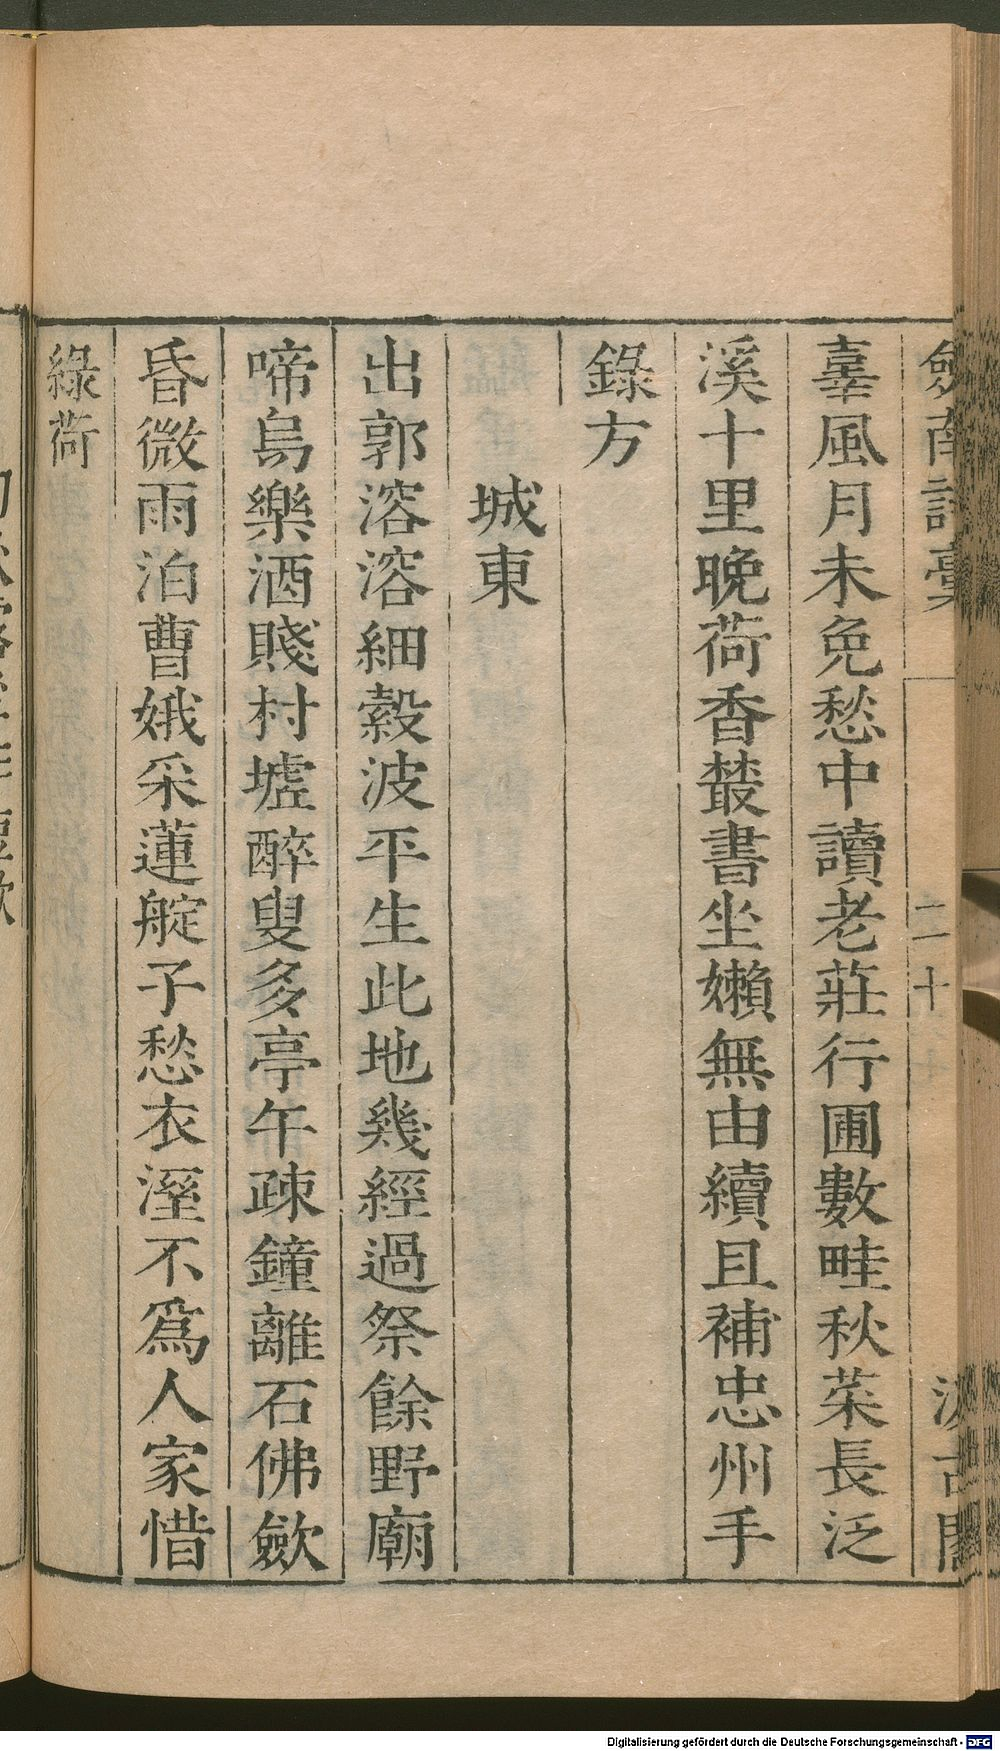 劒南詩稾
二十
汲古閣
辜風月未免愁中讀老莊行圃數畦秋菜長泛
溪十里晚荷香叢書坐嬾無由續且補忠州手
錄方
城東
出郭溶溶細縠波平生此地幾經過祭餘野廟
啼烏樂酒賤村墟醉叟多亭午疎鐘離石佛歛
昏微雨泊曹娥采蓮艇子愁衣溼不爲人家惜
綠荷
Digitalisierung gefördert durch die Deutsche Forschungsgemeinschaft - DFG